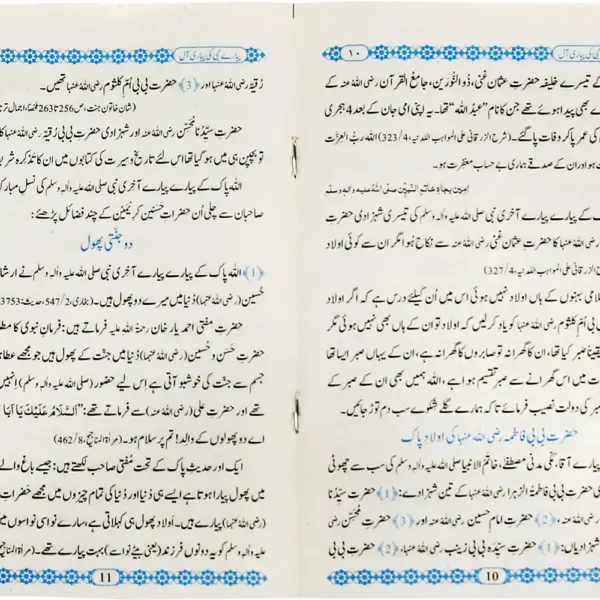 نبی کی پیاری آل
۱۰
کے تیسرے خلیفہ حضرتِ عثمانِ غنی، ذُوالنُّورَین، جامعُ القرآن رضی اللہُ عنہ کے
بھی پیدا ہوئے تھے جن کا نام ”عبدُ اللہ“ تھا۔ یہ اپنی امی جان کے بعد 4 ہجری
کی عمر پاکر وفات پاگئے۔ (شرح الزرقانی علی المواہب اللدنیہ، 4/323) اللہ ربُّ العزّت
ہو اور ان کے صدقے ہماری بے حساب مغفِرت ہو۔
اٰمین بِجاہِ خاتمِ النَّبِیّٖن صلّی اللہُ علیهِ واٰلهٖ وسلّم
کے پیارے پیارے آخری نبی صلی اللہ علیہ واٰلہٖ وسلم کی تیسری شہزادی حضرتِ
رضی اللہُ عنہا کا حضرتِ عثمانِ غنی رضی اللہُ عنہ سے نکاح ہوا مگر ان سے کوئی اولاد
زرقانی علی المواہب اللدنیہ، 4/327)
اسلامی بہنوں کے ہاں اولاد نہیں ہوئی اس میں اُن کیلئے درس ہے کہ اگر اولاد
بی اُمِّ کلثوم رضی اللہُ عنہا کو یاد کرلیں کہ اولاد تو ان کے ہاں بھی نہیں ہوئی مگر
یقیناً صبر کیا تھا، ان کا گھرانہ تو صابروں کا گھرانہ ہے، ان کے یہاں صبر ایسا تھا
میں اس گھرانے سے صبر تقسیم ہوا ہے، اللہ ہمیں بھی ان کے صبر کے
صبر کی دولت نصیب فرمائے تاکہ ہمارے گلے شکوے سب دم توڑ جائیں۔
حضرتِ بی بی فاطمہ رضی اللہُ عنہا کی اولادِ پاک
پیارے آقا، مکی مدنی مصطفےٰ، خاتمُ الانبیا صلی اللہ علیہ واٰلہٖ وسلم کی سب سے چھوٹی
حضرتِ بی بی فاطمۃُ الزہرا رضی اللہُ عنہا کے تین شہزادے: ﴿1﴾ حضرتِ سیِّدُنا
رضی اللہُ عنہ، ﴿2﴾ حضرتِ امام حسین رضی اللہُ عنہ اور ﴿3﴾ حضرتِ مُحسِّن رضی
شہزادیاں: ﴿1﴾ حضرتِ سیِّدہ بی بی زینب رضی اللہُ عنہا، ﴿2﴾ حضرتِ بی بی
10
پیارے نبی کی پیاری آل
رُقیّہ رضی اللہُ عنہا اور ﴿3﴾ حضرتِ بی بی اُمِّ کلثوم رضی اللہُ عنہا تھیں۔
(شانِ خاتونِ جنت، ص256 تا 263
حضرتِ سیِّدُنا مُحسِّن رضی اللہُ عنہ اور شہزادی حضرتِ بی بی رُقیّہ رضی اللہُ عنہا کا
تو بچپن ہی میں ہوگیا تھا اس لئے تاریخ و سیرت کی کتابوں میں ان کا تذکرہ
اللہ پاک کے پیارے پیارے آخری نبی صلی اللہ علیہ واٰلہٖ وسلم کی نسل مبارک
صاحبان سے چلی اُن حضراتِ حَسَنین کریمَین کے چند فضائل پڑھئے:
دو جنّتی پھول
﴿1﴾ اللہ پاک کے پیارے پیارے آخری نبی صلی اللہ علیہ واٰلہٖ وسلم نے ارشاد
حُسین (رضی اللہُ عنہما) دُنیا میں میرے دو پھول ہیں۔ (بخاری، 2/547، حدیث: 3753)
حضرتِ مفتی احمد یار خان رحمۃُ اللہِ علیہ فرماتے ہیں: فرمانِ نبوی کا
حضرتِ حَسَن و حُسین (رضی اللہُ عنہما) دُنیا میں جنّت کے پھول ہیں جو مجھے عطا
جسم سے جنّت کی خوشبو آتی ہے اس لیے حضور (صلی اللہ علیہ واٰلہٖ وسلم) اِنہیں
تھے اور حضرتِ علی (رضی اللہُ عنہ) سے فرماتے تھے: ”اَلسَّلَامُ عَلَیْكَ یَا اَبَا
اے دو پھولوں کے والِد! تم پر سلام ہو۔ (مراٰۃ المناجیح، 8/462)
ایک اور حدیثِ پاک کے تحت مُفتی صاحب لکھتے ہیں: جیسے باغ والے
میں پھول پیارا ہوتا ہے ایسے ہی دُنیا اور دُنیا کی تمام چیزوں میں مجھے حضراتِ
(رضی اللہُ عنہما) پیارے ہیں۔ اَولاد پھول ہی کہلاتی ہے، سارے نواسی نواسوں میں
علیہ واٰلہٖ وسلم کو یہ دونوں فرزند (یعنی بیٹے نواسے) بہت پیارے تھے۔ (مراٰۃ المناجیح
11